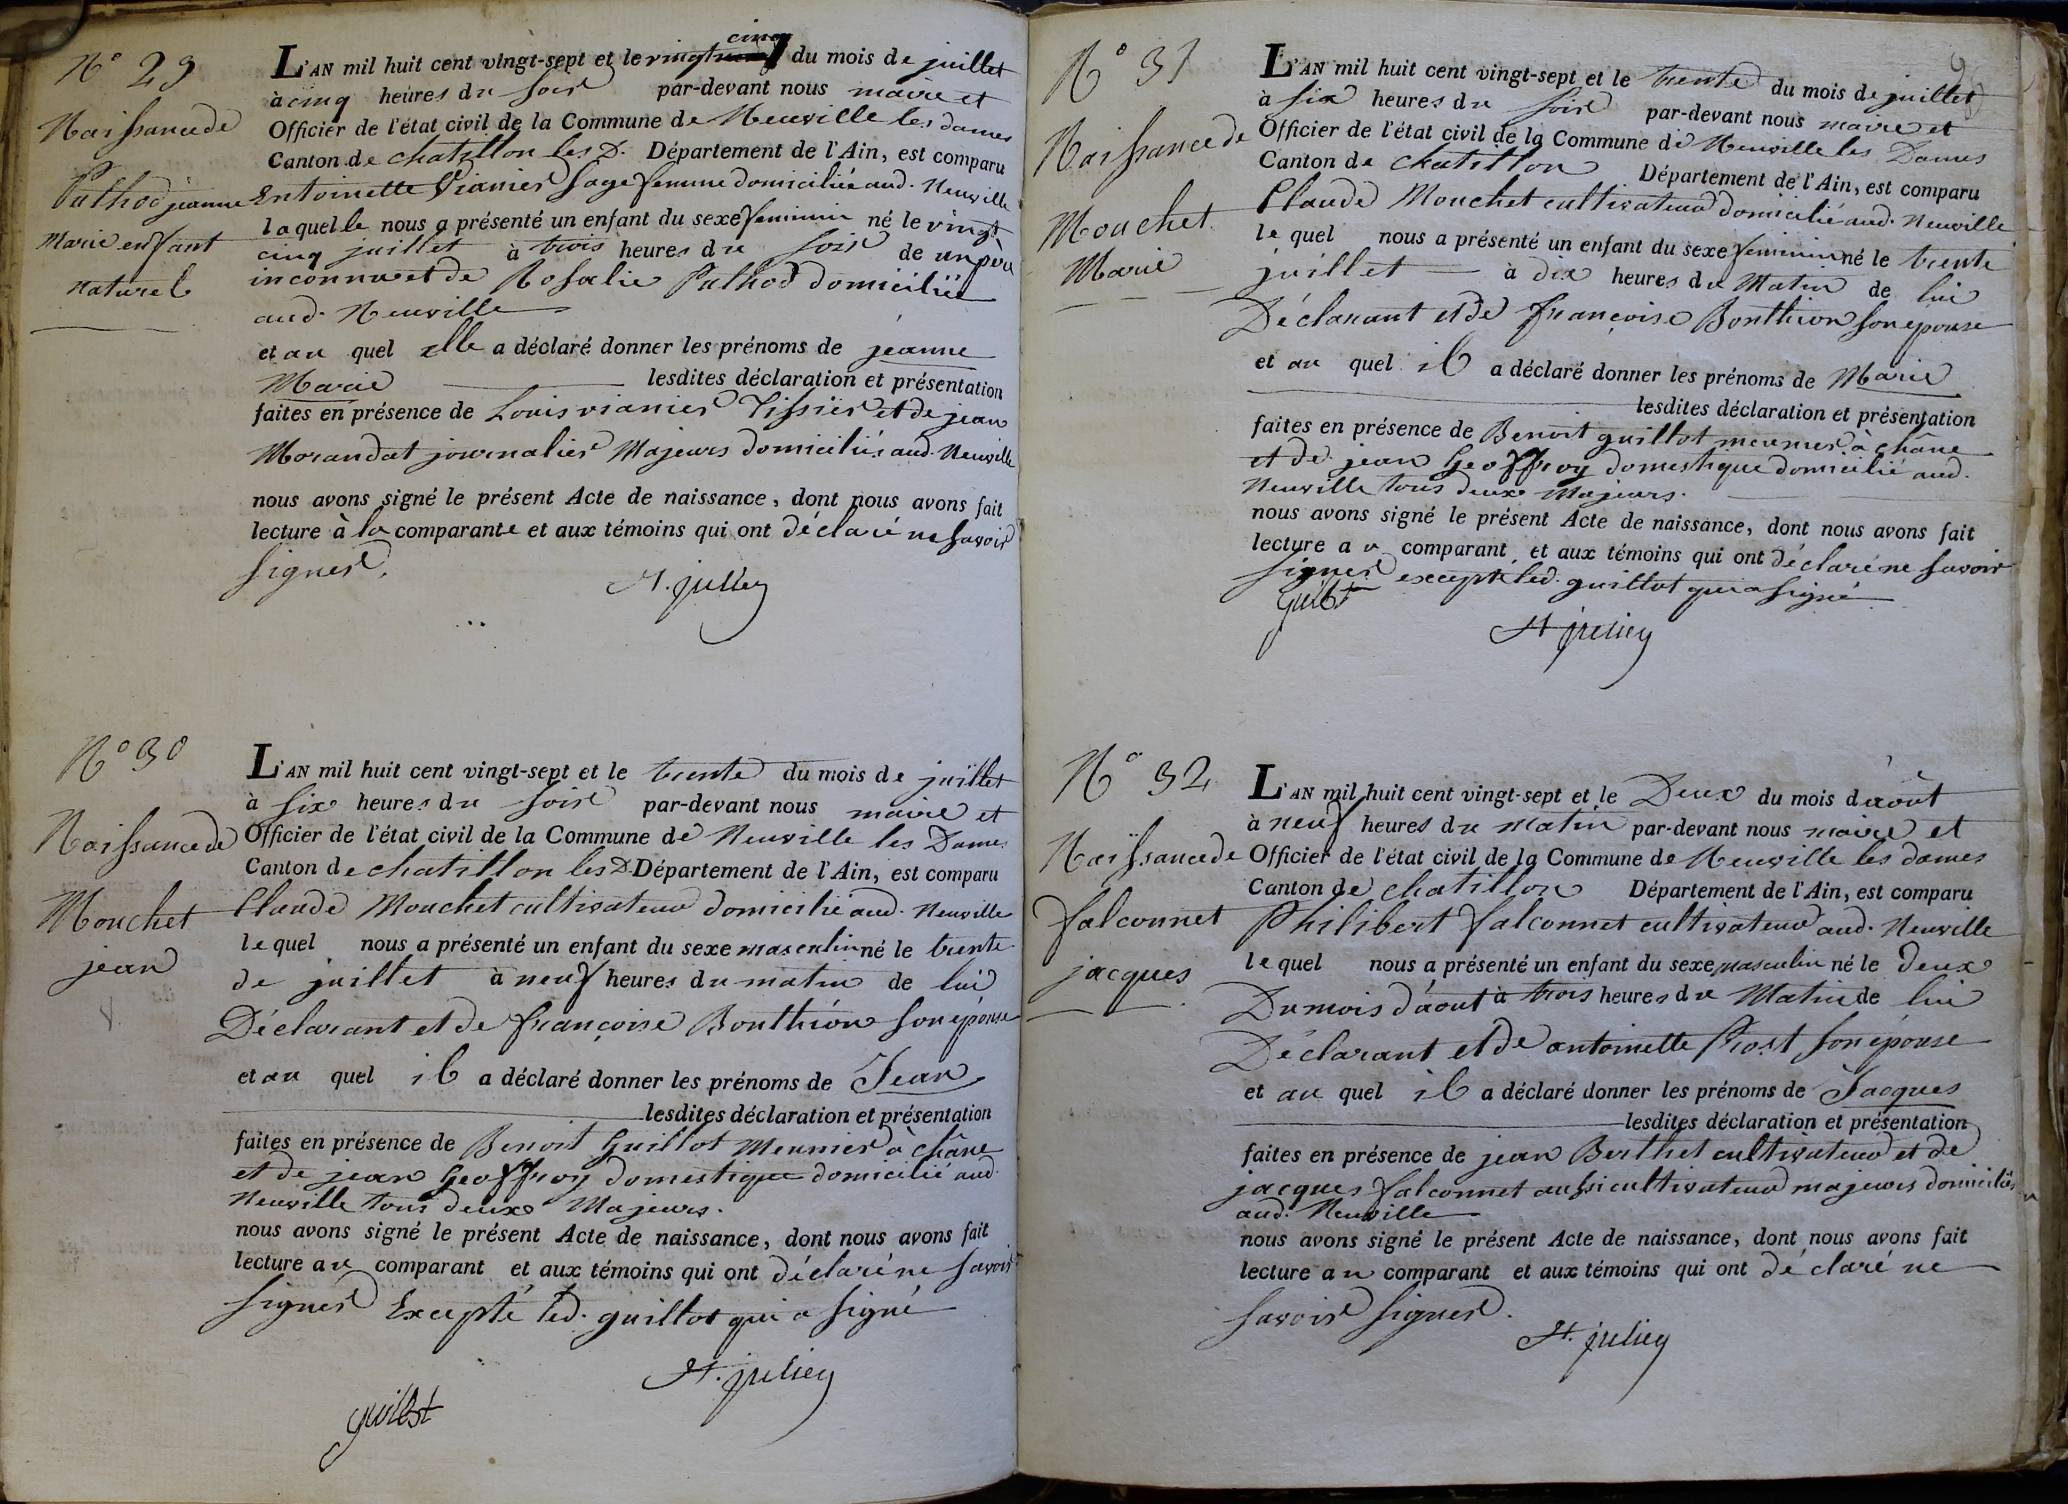 N° 29
Naissance de
Puthod jeanne
Marie enfant
naturel
L'AN mil huit cent vingt-sept et le vingt cinq du mois de juillet
à cinq heures du soir par-devant nous maire et
Officier de l'état civil de la Commune de Neuville les dames
Canton de chatillon les D. Département de l'Ain, est comparu
Entoinette Vianier sage femme domiciliée aud. Neuville
laquelle nous a présenté un enfant du sexe feminin né le vingt
cinq juillet à trois heures du soir de un père
inconnu et de Rosalie Puthod domiciliée
aud. Neuville
et au quel elle a déclaré donner les prénoms de jeanne
Marie lesdites déclaration et présentation
faites en présence de Louis vianier Tissier et de jean
Morandat journalier Majeurs domiciliés aud. Neuville
nous avons signé le présent Acte de naissance, dont nous avons fait
lecture à la comparante et aux témoins qui ont déclaré ne savoir
signer.
N° 30
Naissance de
Mouchet
jean
L'AN mil huit cent vingt-sept et le trente du mois de juillet
à six heures du soir par-devant nous maire et
Officier de l'état civil de la Commune de Neuville les Dames
Canton de chatillon les D. Département de l'Ain, est comparu
Claude Mouchet cultivateur domicilié aud. Neuville
lequel nous a présenté un enfant du sexe masculin né le trente
de juillet à neuf heures du matin de lui
Déclarant et de françoise Bonthion son épouse
et au quel il a déclaré donner les prénoms de Jean
lesdites déclaration et présentation
faites en présence de Benoit Guillot Meunier à châne
et de jean Geoffroy domestique domicilié aud.
Neuville tous deux Majeurs.
nous avons signé le présent Acte de naissance, dont nous avons fait
lecture au comparant et aux témoins qui ont déclaré ne savoir
signer Excepté led. guillot qui a signé
guillot
N° 31
Naissance de
Mouchet
Marie
L'AN mil huit cent vingt-sept et le trente du mois de juillet
à six heures du soir par-devant nous maire et
Officier de l'état civil de la Commune de Neuville les Dames
Canton de chatillon Département de l'Ain, est comparu
Claude Mouchet cultivateur domicilié aud. Neuville
lequel nous a présenté un enfant du sexe feminin né le trente
juillet à dix heures du Matin de lui
Déclarant et de françoise Bonthion son épouse
et au quel il a déclaré donner les prénoms de Marie
lesdites déclaration et présentation
faites en présence de Benoit guillot meunier à châne
et de jean Geoffroy domestique domicilié aud.
Neuville tous deux Majeurs.
nous avons signé le présent Acte de naissance, dont nous avons fait
lecture au comparant et aux témoins qui ont déclaré ne savoir
signer excepté led. guillot qui a signé
N° 32
Naissance de
falconnet
jacques
L'AN mil huit cent vingt-sept et le Deux du mois d'août
à neuf heures du matin par-devant nous maire et
Officier de l'état civil de la Commune de Neuville les dames
Canton de chatillon Département de l'Ain, est comparu
Philibert falconnet cultivateur aud. Neuville
lequel nous a présenté un enfant du sexe masculin né le deux
Du mois d'aout à trois heures du Matin de lui
Déclarant et de antoinette Prost son épouse
et au quel il a déclaré donner les prénoms de Jacques
lesdites déclaration et présentation
faites en présence de jean Berthet cultivateur et de
jacques falconnet aussi cultivateur majeurs domiciliés
aud. Neuville
nous avons signé le présent Acte de naissance, dont nous avons fait
lecture au comparant et aux témoins qui ont déclaré ne
savoir signer.